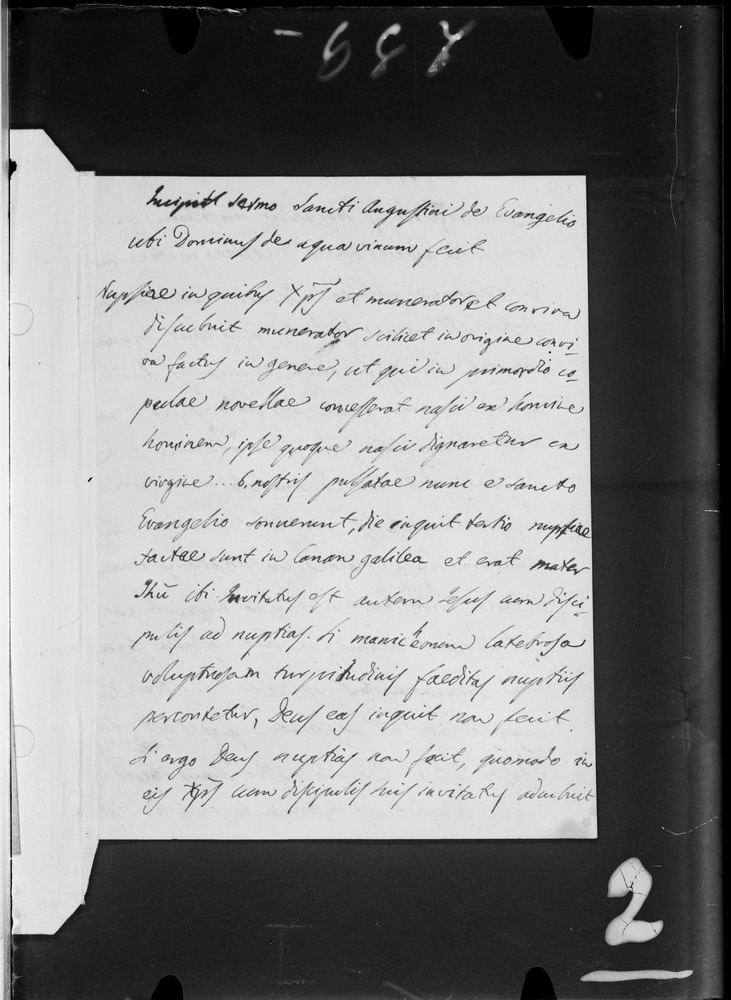 Incipit sermo Sancti Augustini de Evangelio
ubi Dominus de aqua vinum fecit
Nuptiae in quibus Xp̄s et munerator et conviva
discubuit munerator scilicet in origine convi-
va factus in genere, ut qui in primordio co-
pulae novellae concesserat nasci ex homine
hominem, ipse quoque nasci dignaretur ex
virgine ... nostris pulsatae nunc e sancto
Evangelio sonuerunt, die inquit tertio nuptiae
factae sunt in Canan galilea et erat mater
Ihū ibi Invitatus est autem Jesus cum disci-
pulis ad nuptias. Si manicheorum latebrosa
voluptuosam turpitudinis faeditas nuptiis
percontetur, Deus eas inquit non fecit.
Si ergo Deus nuptias non fecit, quomodo in
eis Xp̄s cum discipulis suis invitatus adcubuit
2